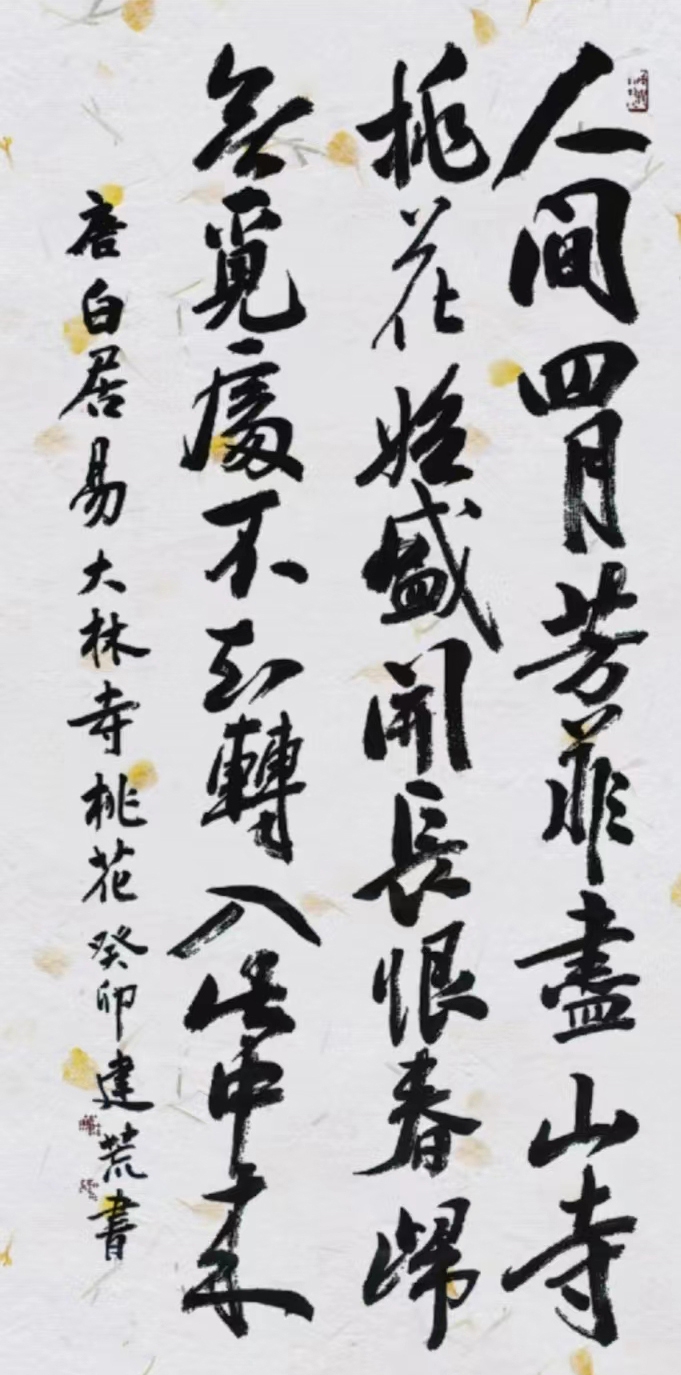 人間四月芳菲盡山寺
桃花始盛開長恨春歸
無覓處不知轉入此中來
唐白居易大林寺桃花癸卯建荒書